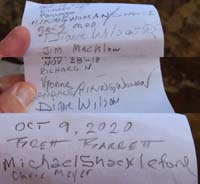 HIKINGWOMAN
GEEZ MOO
DIANE WILSON
JIM MACKLOW
NOV-28-18
RICHARD N.
YVONNE
CANDACE HIKINGWOMAN
DIANE WILSON
OCT 9, 2020
BARRETT
Michael Shackleford
Chris Meyer